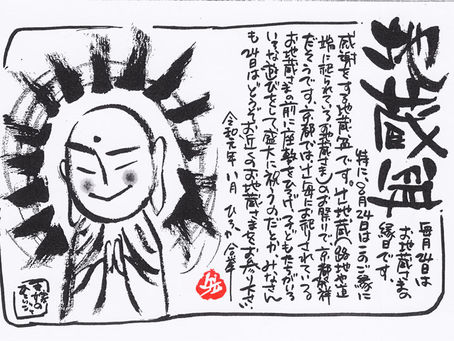 お地蔵様
毎月24日は
お地蔵さまの
縁日です。
特に、8月24日はこのご縁に
感謝をする地蔵盆です。辻地蔵(路地や道
端に祀られているお地蔵さま)のお祭りで、京都が発祥
だそうです。京都では辻毎にお祀りされている
お地蔵さまの前に座敷をひろげ、子どもたちがいろ
いろな遊びをして盛大に祝うのだとか。みなさん
も24日はどうぞお近くのお地蔵さまをお参りください。
令和元年 八月